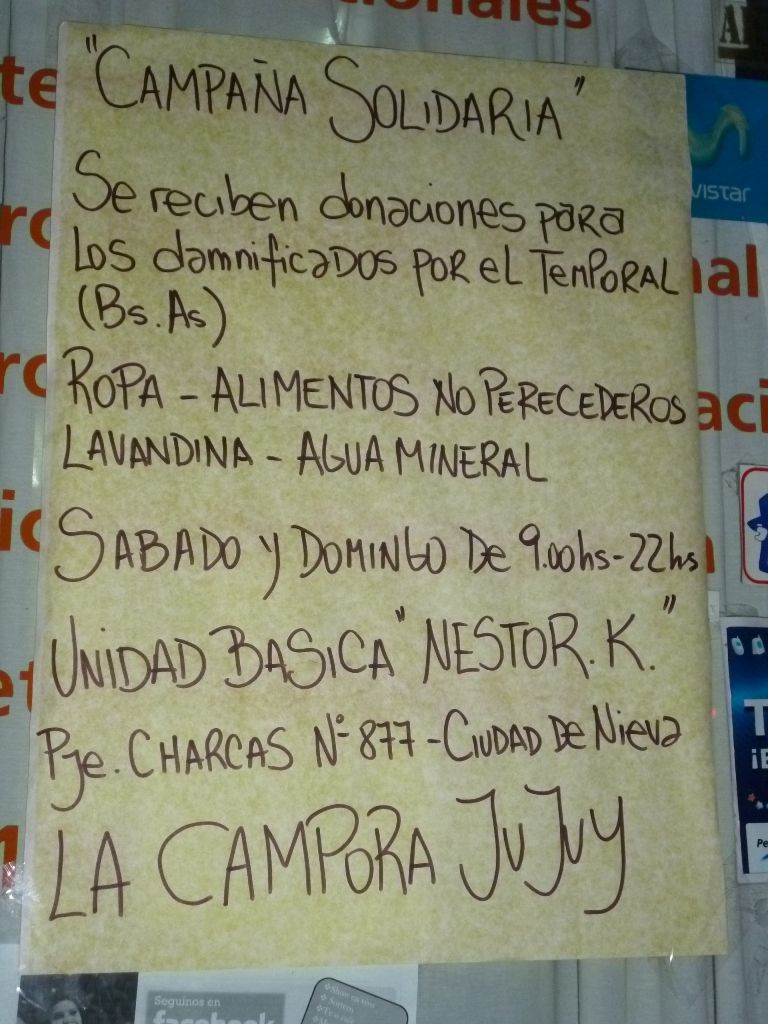 onales
"CAMPAÑA SOLIDARIA"
Se reciben donaciones para
Los damnificados por el Temporal
(Bs. As)
ROPA - ALIMENTOS NO PERECEDEROS
LAVANDINA - AGUA MINERAL
SABADO Y DOMINGO De 9.00hs - 22hs
UNIDAD BASICA "NESTOR. K."
Pje. CHARCAS N° 877 - CIUDAD De Nieva
LA CAMPORA JUJUY
vistar
nal
aci
Seguinos en
facebook